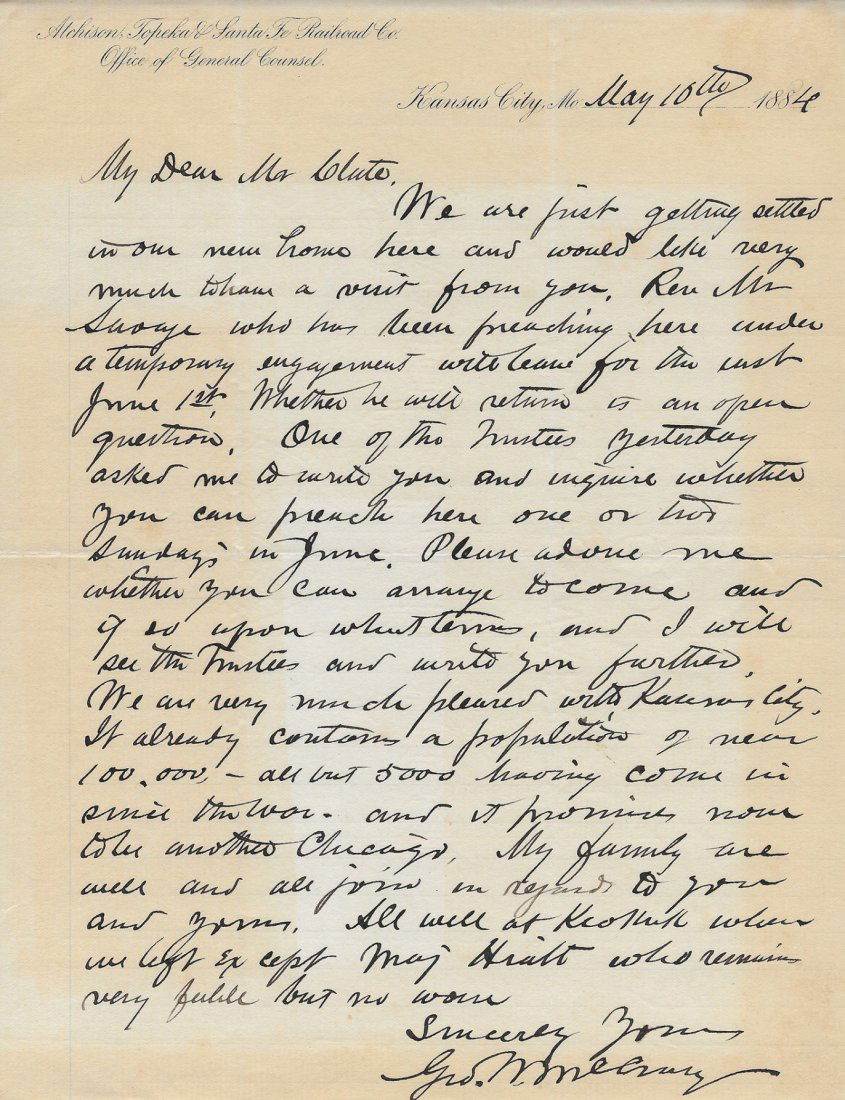 Atchison, Topeka & Santa Fe Railroad Co.
Office of General Counsel.
Kansas City, Mo May 10th 1884
My Dear Mr Clute,
We are just getting settled
in our new home here and would like very
much to have a visit from you. Rev Mr
Savage who has been preaching here under
a temporary engagement will leave for the east
June 1st. Whether he will return is an open
question. One of the Trustees yesterday
asked me to write you and inquire whether
you can preach here one or two
Sundays in June. Please advise me
whether you can arrange to come and
if so upon what terms, and I will
see the Trustees and write you further.
We are very much pleased with Kansas City.
It already contains a population of near
100,000, - all but 5000 having come in
since the war - and it promises now
to be another Chicago. My family are
well and all join in regards to you
and yours. All well at Keokuk when
we left Except Maj Hiatt who remains
very feeble but no worse
Sincerely Yours
Geo. W. McCrary